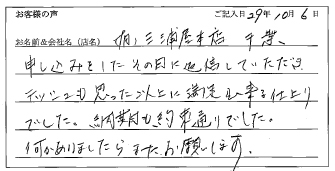 お客様の声
ご記入日 29年 10月 6日
お名前&会社名(店名) (有)三浦屋本店 千葉
申し込みをしたその日に返信していただき
デッシュも思った以上に満足出来る仕上り
でした。納期も約束通りでした。
何かありましたらまたお願いします。